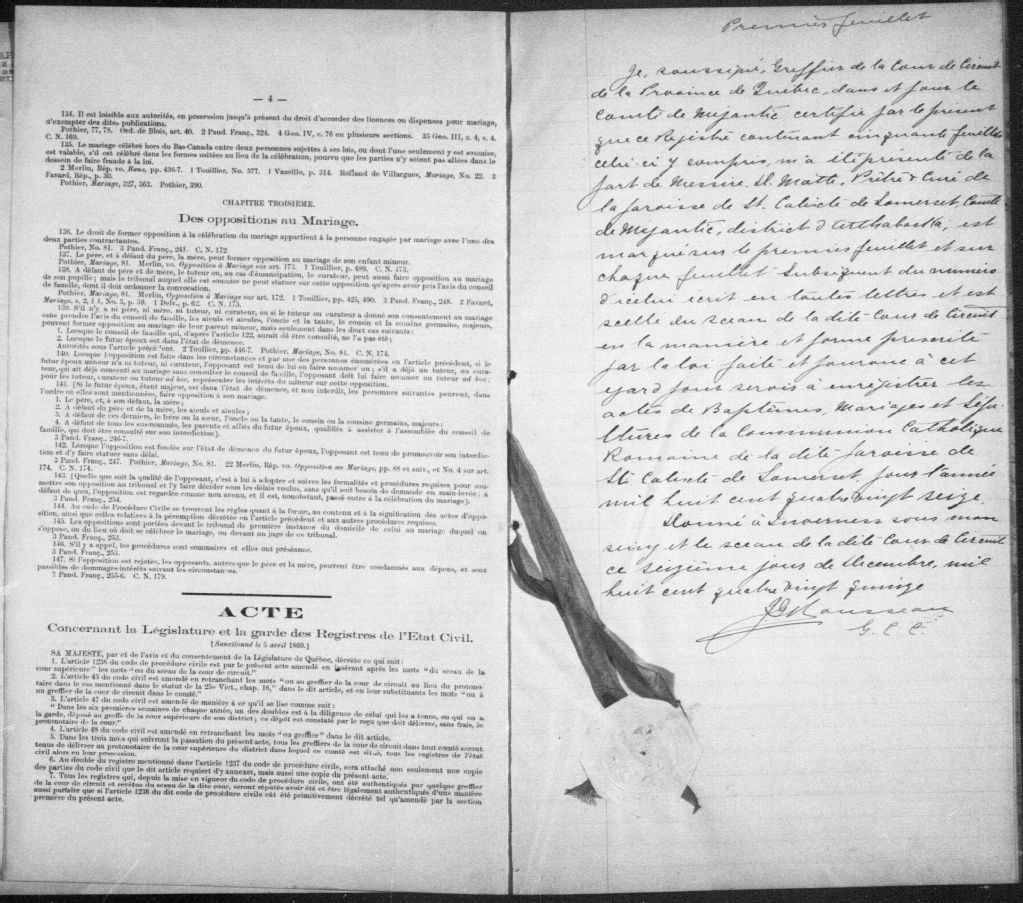 — 4 —
134. Il est loisible aux autorités, en possession jusqu'à présent du droit d'accorder des licences ou dispenses pour mariage,
d'exempter des dites publications.
Pothier, 77, 78. Ord. de Blois, art. 40. 2 Pand. Franç., 324. 4 Geo. IV, c. 76 en plusieurs sections. 35 Geo. III, c. 4, s. 4.
C. N. 169.
135. Le mariage célébré hors du Bas-Canada entre deux personnes sujettes à ses lois, ou dont l'une seulement y est soumise,
est valable, s'il est célébré dans les formes usitées au lieu de la célébration, pourvu que les parties n'y soient pas allées dans le
dessein de faire fraude à la loi.
2 Merlin, Rép. vo. Bans, pp. 436-7. 1 Touillier, No. 577. 1 Vazeille, p. 314. Rolland de Villargues, Mariage, No. 22. 3
Favard, Rép., p. 30.
Pothier, Mariage, 327, 363. Pothier, 390.
CHAPITRE TROISIEME.
Des oppositions au Mariage.
136. Le droit de former opposition à la célébration du mariage appartient à la personne engagée par mariage avec l'une des
deux parties contractantes.
Pothier, No. 81. 3 Pand. Franç., 241. C. N. 172.
137. Le père, et à défaut du père, la mère, peut former opposition au mariage de son enfant mineur.
Pothier, Mariage, 81. Merlin, vo. Opposition à Mariage sur art. 173. 1 Touillier, p. 489. C. N. 173.
138. A défaut de père et de mère, le tuteur ou, au cas d'émancipation, le curateur, peut aussi faire opposition au mariage
de son pupille; mais le tribunal auquel elle est soumise ne peut statuer sur cette opposition qu'après avoir pris l'avis du conseil
de famille, dont il doit ordonner la convocation.
Pothier, Mariage, 81. Merlin, Opposition à Mariage sur art. 172. 1 Touillier, pp. 425, 490. 3 Pand. Franç., 248. 2 Favard,
Mariage, s. 2, § 1, No. 3, p. 59. 1 Delv., p. 62. C. N. 175.
139. S'il n'y a ni père, ni mère, ni tuteur, ni curateur, ou si le tuteur ou curateur a donné son consentement au mariage
sans prendre l'avis du conseil de famille, les aïeuls et aïeules, l'oncle et la tante, le cousin et la cousine germains, majeurs,
peuvent former opposition au mariage de leur parent mineur, mais seulement dans les deux cas suivants:
1. Lorsque le conseil de famille qui, d'après l'article 122, aurait dû être consulté, ne l'a pas été;
2. Lorsque le futur époux est dans l'état de démence.
Autorités sous l'article précédent. 2 Toullier, pp. 446-7. Pothier, Mariage, No. 81. C. N. 174.
140. Lorsque l'opposition est faite dans les circonstances et par une des personnes énumérées en l'article précédent, si le
futur époux mineur n'a ni tuteur, ni curateur, l'opposant est tenu de lui en faire nommer un; s'il a déjà un tuteur, ou cura-
teur, qui ait déjà consenti au mariage sans consulter le conseil de famille, l'opposant doit lui faire nommer un tuteur ad hoc;
pour les tuteur, curateur ou tuteur ad hoc, représenter les intérêts du mineur sur cette opposition.
141. [Si le futur époux, étant majeur, est dans l'état de démence, et non interdit, les personnes suivantes peuvent, dans
l'ordre où elles sont mentionnées, faire opposition à son mariage.
1. Le père, et, à son défaut, la mère;
2. A défaut du père et de la mère, les aïeuls et aïeules;
3. A défaut de ces derniers, le frère ou la sœur, l'oncle ou la tante, le cousin ou la cousine germains, majeurs;
4. A défaut de tous les sus-nommés, les parents et alliés du futur époux, qualifiés à assister à l'assemblée du conseil de
famille, qui doit être consulté sur son interdiction].
3 Pand. Franç., 246-7.
142. Lorsque l'opposition est fondée sur l'état de démence du futur époux, l'opposant est tenu de promouvoir son interdic-
tion et d'y faire statuer sans délai.
3 Pand. Franç., 247. Pothier, Mariage, No. 81. 22 Merlin, Rép. vo. Opposition au Mariage, pp. 88 et suiv., et No. 4 sur art.
174. C. N. 174.
143. [Quelle que soit la qualité de l'opposant, c'est à lui à adopter et suivre les formalités et procédures requises pour sou-
mettre son opposition au tribunal et l'y faire décider sous les délais voulus, sans qu'il soit besoin de demande en main-levée; à
défaut de quoi, l'opposition est regardée comme non avenu, et il est, nonobstant, passé outre à la célébration du mariage].
3 Pand. Franç., 254.
144. Au code de Procédure Civile se trouvent les règles quant à la forme, au contenu et à la signification des actes d'oppo-
sition, ainsi que celles relatives à la péremption décrétée en l'article précédent et aux autres procédures requises.
145. Les oppositions sont portées devant le tribunal de première instance du domicile de celui au mariage duquel on
s'oppose, ou du lieu où doit se célébrer le mariage, ou devant un juge de ce tribunal.
3 Pand. Franç., 253.
146. S'il y a appel, les procédures sont sommaires et elles ont préséance.
3 Pand. Franç., 253.
147. Si l'opposition est rejetée, les opposants, autres que le père et la mère, peuvent être condamnés aux dépens, et sont
passibles de dommages-intérêts suivant les circonstances.
2 Pand. Franç., 255-6. C. N. 179.
ACTE
Concernant la Législature et la garde des Registres de l'Etat Civil.
[Sanctionné le 5 avril 1869.]
SA MAJESTE, par et de l'avis et du consentement de la Législature de Québec, décrète ce qui suit:
1. L'article 1236 du code de procédure civile est par le présent acte amendé en insérant après les mots "du sceau de la
cour supérieure" les mots "ou du sceau de la cour de circuit."
2. L'article 45 du code civil est amendé en retranchant les mots "ou au greffier de la cour de circuit au lieu du protono-
taire dans le cas mentionné dans le statut de la 25e Vict., chap. 16," dans le dit article, et en leur substituants les mots "ou à
un greffier de la cour de circuit dans le comté."
3. L'article 47 du code civil est amendé de manière à ce qu'il se lise comme suit:
"Dans les six premières semaines de chaque année, un des doubles est à la diligence de celui qui les a tenus, ou qui en a
la garde, déposé au greffe de la cour supérieure de son district; ce dépôt est constaté par le reçu que doit délivrer, sans frais, le
protonotaire de la cour."
4. L'article 48 du code civil est amendé en retranchant les mots "ou greffier" dans le dit article.
5. Dans les trois mois qui suivront la passation du présent acte, tous les greffiers de la cour de circuit dans tout comté seront
tenus de délivrer au protonotaire de la cour supérieure du district dans lequel ce comté est situé, tous les registres de l'état
civil alors en leur possession.
6. Au double du registre mentionné dans l'article 1237 du code de procédure civile, sera attaché non seulement une copie
des parties du code civil que le dit article requiert d'y annexer, mais aussi une copie du présent acte.
7. Tous les registres qui, depuis la mise en vigueur du code de procédure civile, ont été authentiqués par quelque greffier
de la cour de circuit et revêtus du sceau de la dite cour, seront réputés avoir été et être légalement authentiqués d'une manière
aussi parfaite que si l'article 1236 du dit code de procédure civile eût été primitivement décrété tel qu'amendé par la section
première du présent acte.
Premier feuillet
Je, soussigné, Greffier de la Cour de Circuit
de la Province de Québec, dans et pour le
Comté de Mégantic certifie par le présent
que ce Registre contenant cinquante feuillets
celui-ci y compris, m'a été présenté de la
part de Messire D. Matte, Prêtre & Curé de
la paroisse de St. Calixte de Somerset, Comté
de Mégantic, district d'Arthabaska; est
marqué sur le premier feuillet et sur
chaque feuillet subséquent du numéro
d'icelui écrit en toutes lettres et est
scellé du sceau de la dite Cour de Circuit
en la manière et forme prescrite
par la loi faite et pourvue à cet
égard pour servir à enrégistrer les
actes de Baptêmes, Mariages et Sépu-
ltures de la Communion Catholique
Romaine de la dite paroisse de
St. Calixte de Somerset, pour l'année
mil huit cent quatre vingt seize.
Donné à Inverness sous mon
seing et le sceau de la dite Cour de Circuit
ce seizième jour de Décembre, mil
huit cent quatre vingt quinze
Rousseau
G. C. C.